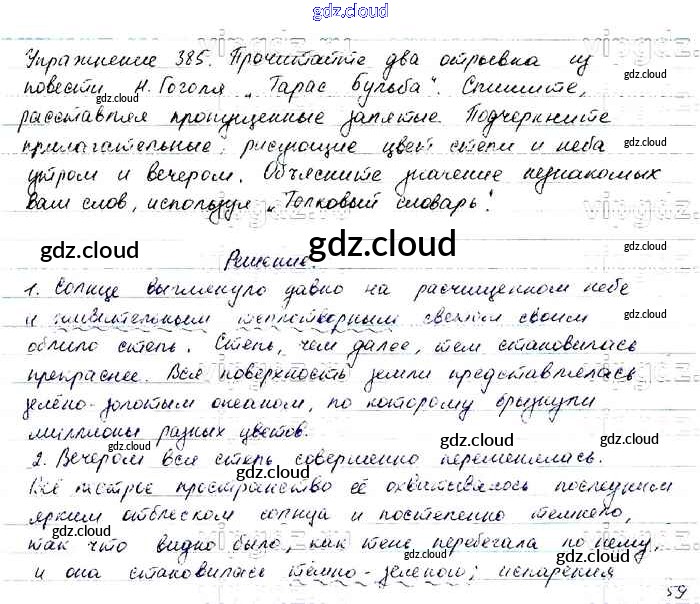 gdz.cloud
Упражнение 385. Прочитайте два отрывка из
повести Н. Гоголя „Тарас Бульба". Спишите,
расставляя пропущенные запятые. Подчеркните
прилагательные, рисующие цвет степи и неба
утром и вечером. Объясните значение незнакомых
вам слов, используя „Толковый словарь".
Решение.
1. Солнце выглянуло давно на расчищенном небе
и живительным теплотворным светом своим
облило степь. Степь, чем далее, тем становилась
прекраснее. Вся поверхность земли представлялась
зелёно-золотым океаном, по которому брызнули
миллионы разных цветов.
2. Вечером вся степь совершенно переменялась.
Всё пёстрое пространство её охватывалось последним
ярким отблеском солнца и постепенно темнело,
так что видно было, как тень перебегала по нему,
и она становилась тёмно-зеленою; испарения
59